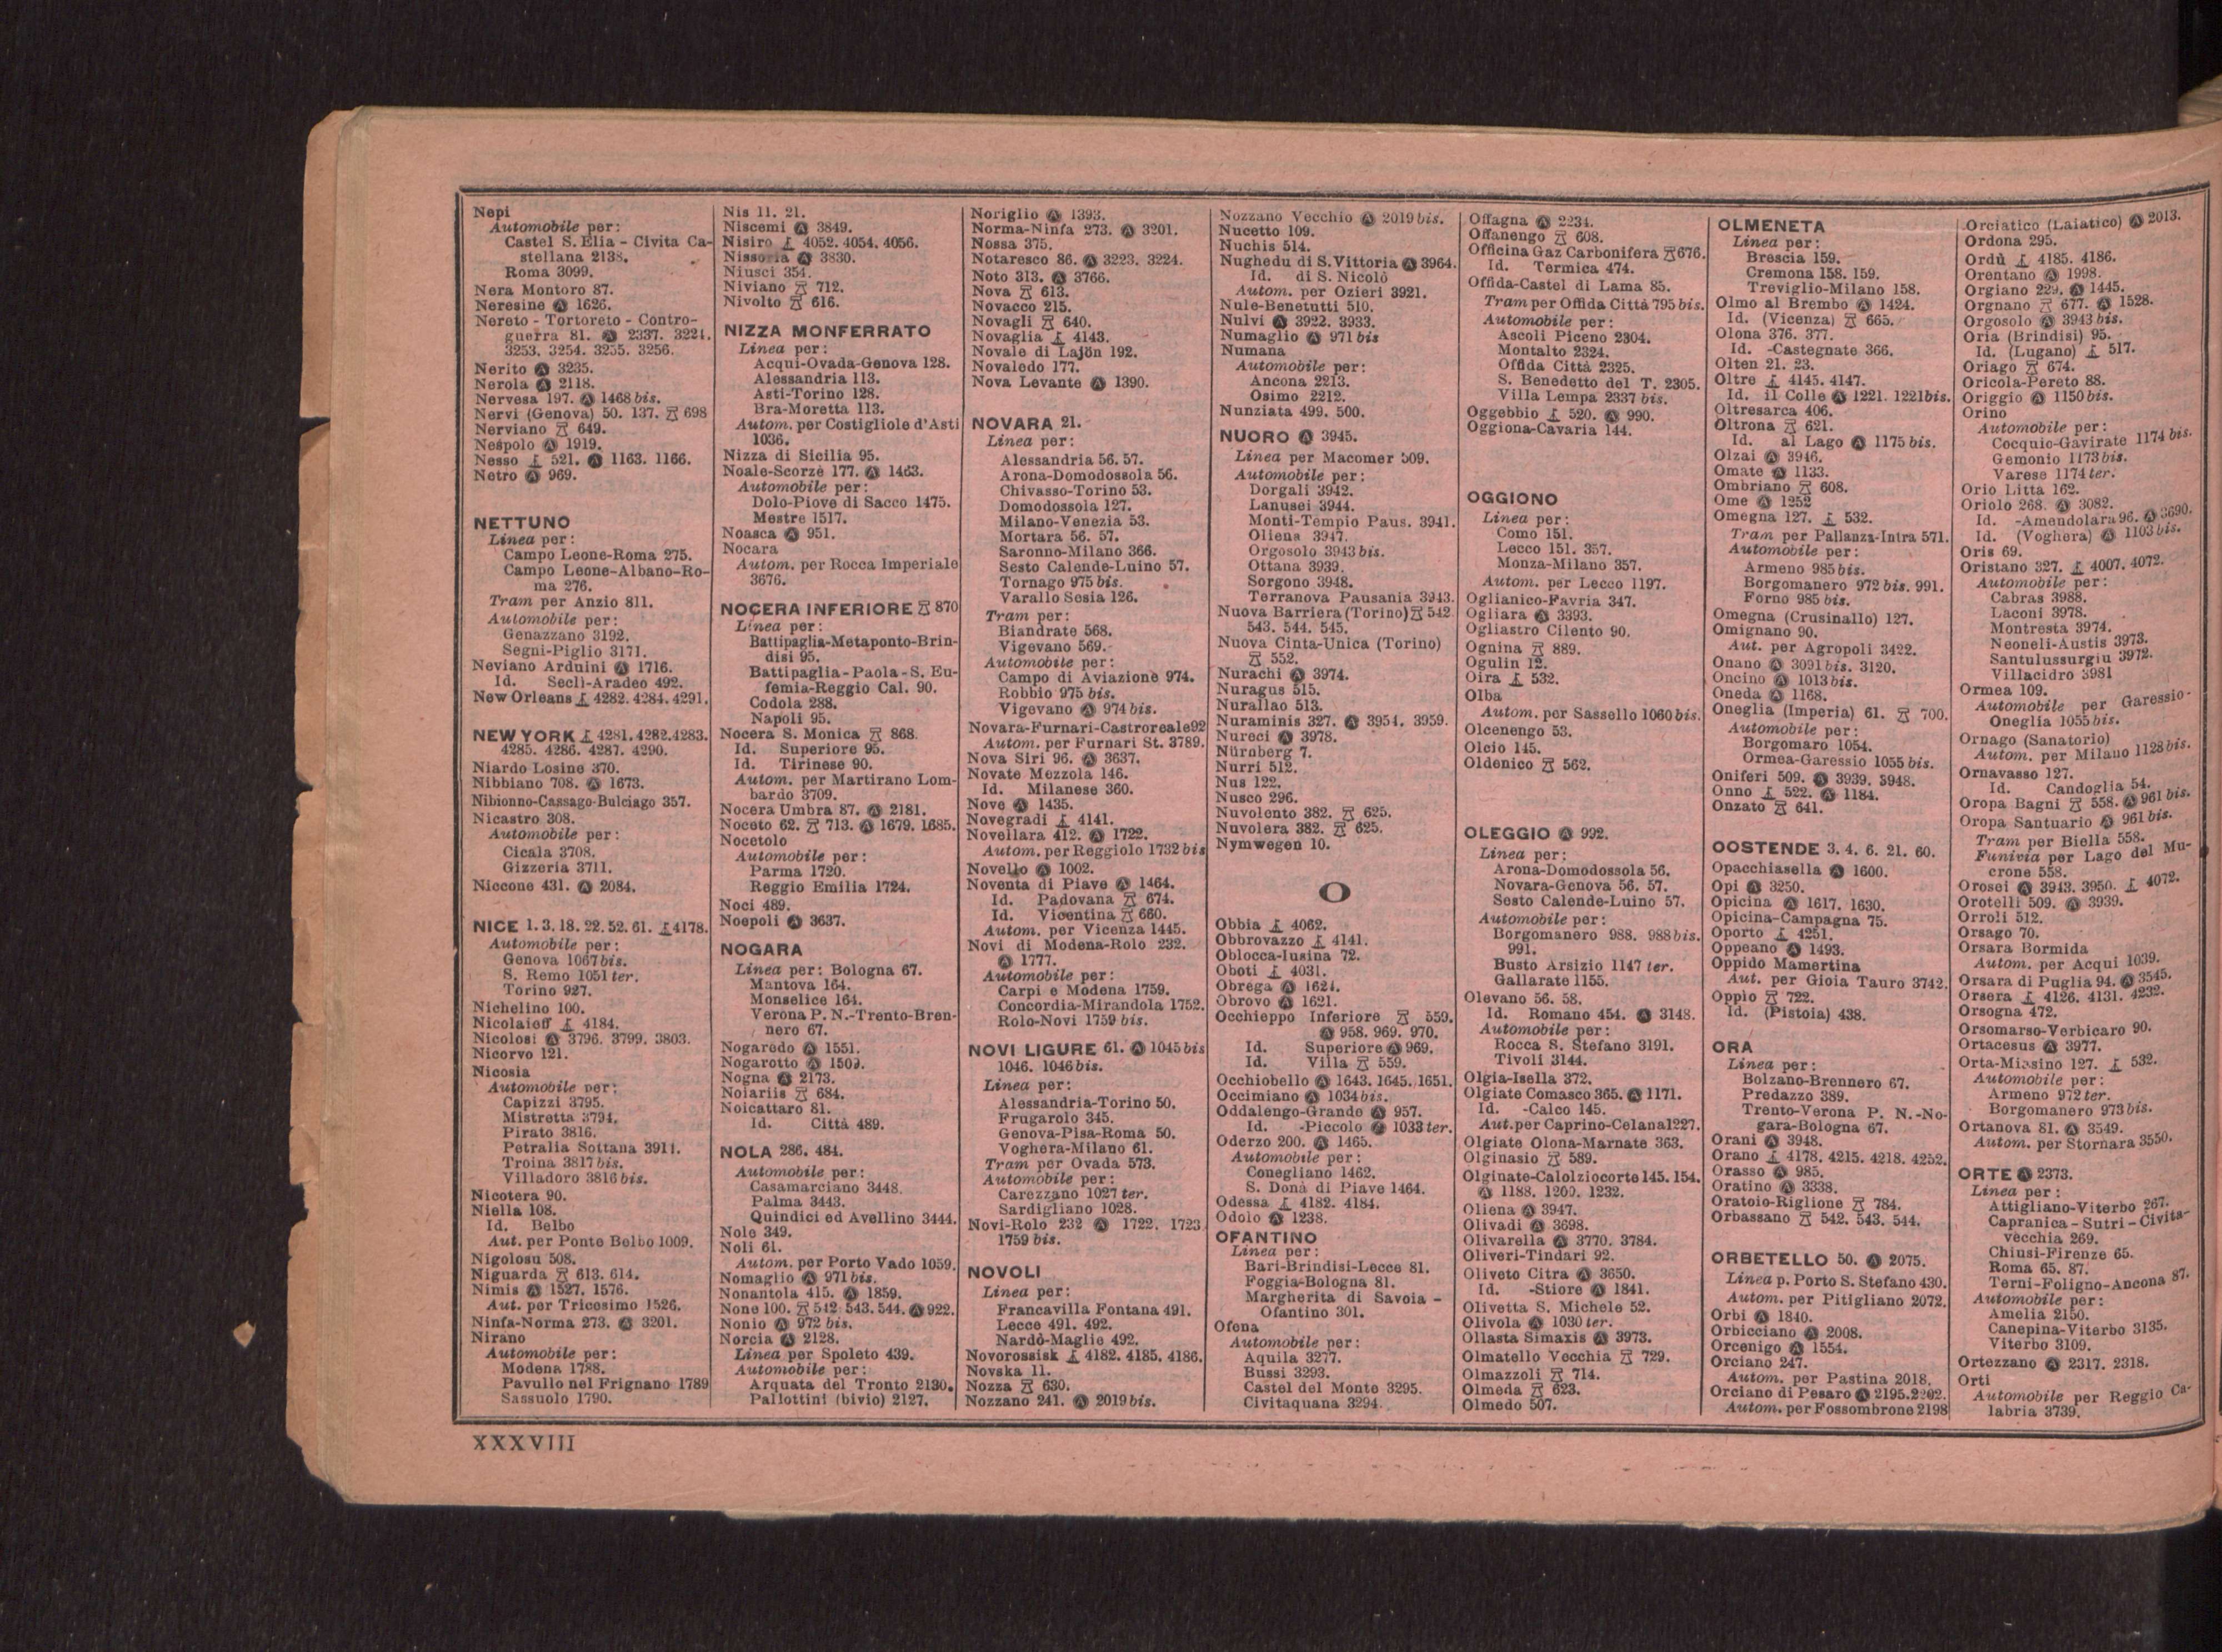 Nepi
Automobile per:
Castel S. Elia - Civita Ca-
stellana 2138.
Roma 3099.
Nera Montoro 87.
Neresine Ⓐ 1626.
Nereto - Tortoreto - Contro-
guerra 81. Ⓐ 2337. 3221.
3253. 3254. 3255. 3256.
Nerito Ⓐ 3235.
Nerola Ⓐ 2118.
Nervesa 197. Ⓐ 1468 bis.
Nervi (Genova) 50. 137. 698
Nerviano 649.
Nespolo Ⓐ 1919.
Nesso 521. Ⓐ 1163. 1166.
Netro Ⓐ 969.
NETTUNO
Linea per:
Campo Leone-Roma 275.
Campo Leone-Albano-Ro-
ma 276.
Tram per Anzio 811.
Automobile per:
Genazzano 3192.
Segni-Piglio 3171.
Neviano Arduini Ⓐ 1716.
Id. Seclì-Aradeo 492.
New Orleans 4282. 4284. 4291.
NEW YORK 4281. 4282. 4283.
4285. 4286. 4287. 4290.
Niardo Losine 370.
Nibbiano 708. Ⓐ 1673.
Nibionno-Cassago-Bulciago 357.
Nicastro 308.
Automobile per:
Cicala 3708.
Gizzeria 3711.
Niccone 431. Ⓐ 2084.
NICE 1. 3. 18. 22. 52. 61. 4178.
Automobile per:
Genova 1067 bis.
S. Remo 1051 ter.
Torino 927.
Nichelino 100.
Nicolaieff 4184.
Nicolosi Ⓐ 3796. 3799. 3803.
Nicorvo 121.
Nicosia
Automobile per:
Capizzi 3795.
Mistretta 3794.
Pirato 3816.
Petralia Sottana 3911.
Troina 3817 bis.
Villadoro 3816 bis.
Nicotera 90.
Niella 108.
Id. Belbo
Aut. per Ponte Belbo 1009.
Nigolosu 508.
Niguarda 613. 614.
Nimis Ⓐ 1527. 1576.
Aut. per Tricesimo 1526.
Ninfa-Norma 273. Ⓐ 3201.
Nirano
Automobile per:
Modena 1788.
Pavullo nel Frignano 1789
Sassuolo 1790.
Nis 11. 21.
Niscemi Ⓐ 3849.
Nisiro 4052. 4054. 4056.
Nissoria Ⓐ 3830.
Niusci 354.
Niviano 712.
Nivolto 616.
NIZZA MONFERRATO
Linea per:
Acqui-Ovada-Genova 128.
Alessandria 113.
Asti-Torino 128.
Bra-Moretta 113.
Autom. per Costigliole d'Asti
1036.
Nizza di Sicilia 95.
Noale-Scorzè 177. Ⓐ 1463.
Automobile per:
Dolo-Piove di Sacco 1475.
Mestre 1517.
Noasca Ⓐ 951.
Nocara
Autom. per Rocca Imperiale
3676.
NOCERA INFERIORE 870
Linea per:
Battipaglia-Metaponto-Brin-
disi 95.
Battipaglia-Paola-S. Eu-
femia-Reggio Cal. 90.
Codola 288.
Napoli 95.
Nocera S. Monica 868.
Id. Superiore 95.
Id. Tirinese 90.
Autom. per Martirano Lom-
bardo 3709.
Nocera Umbra 87. Ⓐ 2181.
Noceto 62. 713. Ⓐ 1679. 1685.
Nocetolo
Automobile per:
Parma 1720.
Reggio Emilia 1724.
Noci 489.
Noepoli Ⓐ 3637.
NOGARA
Linea per: Bologna 67.
Mantova 164.
Monselice 164.
Verona P. N.-Trento-Bren-
nero 67.
Nogaredo Ⓐ 1551.
Nogarotto Ⓐ 1509.
Nogna Ⓐ 2173.
Noiariis 684.
Noicattaro 81.
Id. Città 489.
NOLA 286. 484.
Automobile per:
Casamarciano 3448.
Palma 3443.
Quindici ed Avellino 3444.
Nole 349.
Noli 61.
Autom. per Porto Vado 1059.
Nomaglio Ⓐ 971 bis.
Nonantola 415. Ⓐ 1859.
None 100. 542. 543. 544. Ⓐ 922.
Nonio Ⓐ 972 bis.
Norcia Ⓐ 2128.
Linea per Spoleto 439.
Automobile per:
Arquata del Tronto 2130.
Pallottini (bivio) 2127.
Noriglio Ⓐ 1393.
Norma-Ninfa 273. Ⓐ 3201.
Nossa 375.
Notaresco 86. Ⓐ 3223. 3224.
Noto 313. Ⓐ 3766.
Nova 613.
Novacco 215.
Novagli 640.
Novaglia 4143.
Novale di Lajön 192.
Novaledo 177.
Nova Levante Ⓐ 1390.
NOVARA 21.
Linea per:
Alessandria 56. 57.
Arona-Domodossola 56.
Chivasso-Torino 53.
Domodossola 127.
Milano-Venezia 53.
Mortara 56. 57.
Saronno-Milano 366.
Sesto Calende-Luino 57.
Tornago 975 bis.
Varallo Sesia 126.
Tram per:
Biandrate 568.
Vigevano 569.
Automobile per:
Campo di Aviazione 974.
Robbio 975 bis.
Vigevano Ⓐ 974 bis.
Novara-Furnari-Castroreale 92
Autom. per Furnari St. 3789.
Nova Siri 96. Ⓐ 3637.
Novate Mezzola 146.
Id. Milanese 360.
Nove Ⓐ 1435.
Novegradi 4141.
Novellara 412. Ⓐ 1722.
Autom. per Reggiolo 1732 bis
Novello Ⓐ 1002.
Noventa di Piave Ⓐ 1464.
Id. Padovana 674.
Id. Vicentina 660.
Autom. per Vicenza 1445.
Novi di Modena-Rolo 232.
Ⓐ 1777.
Automobile per:
Carpi e Modena 1759.
Concordia-Mirandola 1752.
Rolo-Novi 1759 bis.
NOVI LIGURE 61. Ⓐ 1045 bis
1046. 1046 bis.
Linea per:
Alessandria-Torino 50.
Frugarolo 345.
Genova-Pisa-Roma 50.
Voghera-Milano 61.
Tram per Ovada 573.
Automobile per:
Carezzano 1027 ter.
Sardigliano 1028.
Novi-Rolo 232 Ⓐ 1722. 1723
1759 bis.
NOVOLI
Linea per:
Francavilla Fontana 491.
Lecce 491. 492.
Nardò-Maglie 492.
Novorossisk 4182. 4185. 4186.
Novska 11.
Nozza 630.
Nozzano 241. Ⓐ 2019 bis.
Nozzano Vecchio Ⓐ 2019 bis.
Nucetto 109.
Nuchis 514.
Nughedu di S. Vittoria Ⓐ 3964.
Id. di S. Nicolò
Autom. per Ozieri 3921.
Nule-Benetutti 510.
Nulvi Ⓐ 3922. 3933.
Numaglio Ⓐ 971 bis
Numana
Automobile per:
Ancona 2213.
Osimo 2212.
Nunziata 499. 500.
NUORO Ⓐ 3945.
Linea per Macomer 509.
Automobile per:
Dorgali 3942.
Lanusei 3944.
Monti-Tempio Paus. 3941.
Oliena 3947.
Orgosolo 3943 bis.
Ottana 3939.
Sorgono 3948.
Terranova Pausania 3943.
Nuova Barriera (Torino) 542.
543. 544. 545.
Nuova Cinta-Unica (Torino)
552.
Nurachi Ⓐ 3974.
Nuragus 515.
Nurallao 513.
Nuraminis 327. Ⓐ 3954. 3959.
Nureci Ⓐ 3978.
Nürnberg 7.
Nurri 512.
Nus 122.
Nusco 296.
Nuvolento 382. 625.
Nuvolera 382. 625.
Nymwegen 10.
O
Obbia 4062.
Obbrovazzo 4141.
Oblocca-Iusina 72.
Oboti 4031.
Obrega Ⓐ 1624.
Obrovo Ⓐ 1621.
Occhieppo Inferiore 559.
Ⓐ 958. 969. 970.
Id. Superiore Ⓐ 969.
Id. Villa 559.
Occhiobello Ⓐ 1643. 1645. 1651.
Occimiano Ⓐ 1034 bis.
Oddalengo-Grande Ⓐ 957.
Id. -Piccolo Ⓐ 1033 ter.
Oderzo 200. Ⓐ 1465.
Automobile per:
Conegliano 1462.
S. Donà di Piave 1464.
Odessa 4182. 4184.
Odolo Ⓐ 1238.
OFANTINO
Linea per:
Bari-Brindisi-Lecce 81.
Foggia-Bologna 81.
Margherita di Savoia -
Ofantino 301.
Ofena
Automobile per:
Aquila 3277.
Bussi 3293.
Castel del Monte 3295.
Civitaquana 3294.
Offagna Ⓐ 2234.
Offanengo 608.
Officina Gaz Carbonifera 676.
Id. Termica 474.
Offida-Castel di Lama 85.
Tram per Offida Città 795 bis.
Automobile per:
Ascoli Piceno 2304.
Montalto 2324.
Offida Città 2325.
S. Benedetto del T. 2305.
Villa Lempa 2337 bis.
Oggebbio 520. Ⓐ 990.
Oggiona-Cavaria 144.
OGGIONO
Linea per:
Como 151.
Lecco 151. 357.
Monza-Milano 357.
Autom. per Lecco 1197.
Oglianico-Favria 347.
Ogliara Ⓐ 3393.
Ogliastro Cilento 90.
Ognina 889.
Ogulin 12.
Oira 532.
Olba
Autom. per Sassello 1060 bis.
Olcenengo 53.
Olcio 145.
Oldenico 562.
OLEGGIO Ⓐ 992.
Linea per:
Arona-Domodossola 56.
Novara-Genova 56. 57.
Sesto Calende-Luino 57.
Automobile per:
Borgomanero 988. 988 bis.
991.
Busto Arsizio 1147 ter.
Gallarate 1155.
Olevano 56. 58.
Id. Romano 454. Ⓐ 3148.
Automobile per:
Rocca S. Stefano 3191.
Tivoli 3144.
Olgia-Isella 372.
Olgiate Comasco 365. Ⓐ 1171.
Id. -Calco 145.
Aut. per Caprino-Celana 1227.
Olgiate Olona-Marnate 363.
Olginasio 589.
Olginate-Calolziocorte 145. 154.
Ⓐ 1188. 1200. 1232.
Oliena Ⓐ 3947.
Olivadi Ⓐ 3698.
Olivarella Ⓐ 3770. 3784.
Oliveri-Tindari 92.
Oliveto Citra Ⓐ 3650.
Id. -Stiore Ⓐ 1841.
Olivetta S. Michele 52.
Olivola Ⓐ 1030 ter.
Ollasta Simaxis Ⓐ 3973.
Olmatello Vecchia 729.
Olmazzoli 714.
Olmeda 623.
Olmedo 507.
OLMENETA
Linea per:
Brescia 159.
Cremona 158. 159.
Treviglio-Milano 158.
Olmo al Brembo Ⓐ 1424.
Id. (Vicenza) 665.
Olona 376. 377.
Id. -Castegnate 366.
Olten 21. 23.
Oltre 4145. 4147.
Id. il Colle Ⓐ 1221. 1221 bis.
Oltresarca 406.
Oltrona 621.
Id. al Lago Ⓐ 1175 bis.
Olzai Ⓐ 3946.
Omate Ⓐ 1133.
Ombriano 608.
Ome Ⓐ 1252
Omegna 127. 532.
Tram per Pallanza-Intra 571.
Automobile per:
Armeno 985 bis.
Borgomanero 972 bis. 991.
Forno 985 bis.
Omegna (Crusinallo) 127.
Omignano 90.
Aut. per Agropoli 3422.
Onano Ⓐ 3091 bis. 3120.
Oncino Ⓐ 1013 bis.
Oneda Ⓐ 1168.
Oneglia (Imperia) 61. 700.
Automobile per:
Borgomaro 1054.
Ormea-Garessio 1055 bis.
Oniferi 509. Ⓐ 3939. 3948.
Onno 522. Ⓐ 1184.
Onzato 641.
OOSTENDE 3. 4. 6. 21. 60.
Opacchiasella Ⓐ 1600.
Opi Ⓐ 3250.
Opicina Ⓐ 1617. 1630.
Opicina-Campagna 75.
Oporto 4251.
Oppeano Ⓐ 1493.
Oppido Mamertina
Aut. per Gioia Tauro 3742.
Oppio 722.
Id. (Pistoia) 438.
ORA
Linea per:
Bolzano-Brennero 67.
Predazzo 389.
Trento-Verona P. N.-No-
gara-Bologna 67.
Orani Ⓐ 3948.
Orano 4178. 4215. 4218. 4252.
Orasso Ⓐ 985.
Oratino Ⓐ 3338.
Oratoio-Riglione 784.
Orbassano 542. 543. 544.
ORBETELLO 50. Ⓐ 2075.
Linea p. Porto S. Stefano 430.
Autom. per Pitigliano 2072.
Orbi Ⓐ 1840.
Orbicciano Ⓐ 2008.
Orcenigo Ⓐ 1554.
Orciano 247.
Autom. per Pastina 2018.
Orciano di Pesaro Ⓐ 2195. 2202.
Autom. per Fossombrone 2198
Orciatico (Laiatico) Ⓐ 2013.
Ordona 295.
Ordù 4185. 4186.
Orentano Ⓐ 1998.
Orgiano 229. Ⓐ 1445.
Orgnano 677. Ⓐ 1528.
Orgosolo Ⓐ 3943 bis.
Oria (Brindisi) 95.
Id. (Lugano) 517.
Oriago 674.
Oricola-Pereto 88.
Origgio Ⓐ 1150 bis.
Orino
Automobile per:
Cocquio-Gavirate 1174 bis.
Gemonio 1173 bis.
Varese 1174 ter.
Orio Litta 162.
Oriolo 268. Ⓐ 3082.
Id. -Amendolara 96. Ⓐ 3690.
Id. (Voghera) Ⓐ 1103 bis.
Oris 69.
Oristano 327. 4007. 4072.
Automobile per:
Cabras 3988.
Laconi 3978.
Montresta 3974.
Neoneli-Austis 3973.
Santulussurgiu 3972.
Villacidro 3981
Ormea 109.
Automobile per Garessio-
Oneglia 1055 bis.
Ornago (Sanatorio)
Autom. per Milano 1128 bis.
Ornavasso 127.
Id. Candoglia 54.
Oropa Bagni 558. Ⓐ 961 bis.
Oropa Santuario Ⓐ 961 bis.
Tram per Biella 558.
Funivia per Lago del Mu-
crone 558.
Orosei Ⓐ 3943. 3950. 4072.
Orotelli 509. Ⓐ 3939.
Orroli 512.
Orsago 70.
Orsara Bormida
Autom. per Acqui 1039.
Orsara di Puglia 94. Ⓐ 3545.
Orsera 4126. 4131. 4232.
Orsogna 472.
Orsomarso-Verbicaro 90.
Ortacesus Ⓐ 3977.
Orta-Miasino 127. 532.
Automobile per:
Armeno 972 ter.
Borgomanero 973 bis.
Ortanova 81. Ⓐ 3549.
Autom. per Stornara 3550.
ORTE Ⓐ 2373.
Linea per:
Attigliano-Viterbo 267.
Capranica - Sutri - Civita-
vecchia 269.
Chiusi-Firenze 65.
Roma 65. 87.
Terni-Foligno-Ancona 87.
Automobile per:
Amelia 2150.
Canepina-Viterbo 3135.
Viterbo 3109.
Ortezzano Ⓐ 2317. 2318.
Orti
Automobile per Reggio Ca-
labria 3739.
XXXVIII